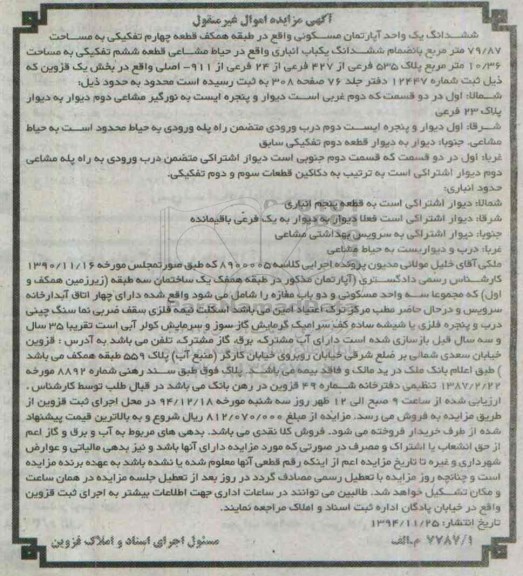 آگهی مزایده اموال غیرمنقول
ششدانگ یک واحد آپارتمان مسکونی واقع در طبقه همکف قطعه چهارم تفکیکی به مساحت
۷۹/۸۷ متر مربع بانضمام ششدانگ یکباب انباری واقع در حیاط مشاعی قطعه ششم تفکیکی به مساحت
۱۰/۳۶ متر مربع پلاک ۵۳۵ فرعی از ۴۲۷ فرعی از ۲۴ فرعی از ۹۱۱- اصلی واقع در بخش یک قزوین که
ذیل ثبت شماره ۱۲۴۴۷ دفتر جلد ۷۶ صفحه ۳۰۸ به ثبت رسیده است محدود به حدود ذیل:
شمالا: اول در دو قسمت که دوم غربی است دیوار و پنجره ایست به نورگیر مشاعی دوم دیوار به دیوار
پلاک ۲۳ فرعی
شرقا: اول دیوار و پنجره ایست دوم درب ورودی متضمن راه پله ورودی به حیاط محدود است به حیاط
مشاعی. جنوبا: دیوار به دیوار قطعه دوم تفکیکی سابق
غربا: اول در دو قسمت که قسمت دوم جنوبی است دیوار اشتراکی متضمن درب ورودی به راه پله مشاعی
دوم دیوار اشتراکی است به ترتیب به دکاکین قطعات سوم و دوم تفکیکی.
حدود انباری:
شمالا: دیوار اشتراکی است به قطعه پنجم انباری
شرقا: دیوار اشتراکی است فعلا دیوار به دیوار به یک فرعی باقیمانده
جنوبا: دیوار اشتراکی به سرویس بهداشتی مشاعی
غربا: درب و دیواریست به حیاط مشاعی
ملکی آقای خلیل مولائی مدیون پرونده اجرایی کلاسه ۸۹۰۰۰۰۵ که طبق صورتمجلس مورخه ۱۳۹۰/۱۱/۱۶
کارشناس رسمی دادگستری (آپارتمان مذکور در طبقه همکف یک ساختمان سه طبقه (زیرزمین همکف و
اول) که مجموعا سه واحد مسکونی و دو باب مغازه را شامل می شود واقع شده دارای چهار اتاق آبدارخانه
سرویس و درحال حاضر مطب مرکز ترک اعتیاد امین می باشد اسکلت نیمه فلزی سقف ضربی نما سنگ چینی
درب و پنجره فلزی با شیشه ساده کف سرامیک گرمایش گاز سوز و سرمایش کولر آبی است تقریبا ۳۵ سال
و سه سال قبل بازسازی شده است دارای آب مشترک، برق، گاز مشترک، تلفن می باشد به آدرس : قزوین
خیابان سعدی شمالی بر ضلع شرقی خیابان روبروی خیابان کارگر (منبع آب) پلاک ۵۵۹ طبقه همکف می باشد
) طبق اعلام بانک ملک در ید مالک و فاقد بیمه می باشد. پلاک فوق طبق سند رهنی شماره ۸۸۹۲ مورخه
۱۳۸۷/۲/۲۲ تنظیمی دفترخانه شماره ۴۹ قزوین در رهن بانک می باشد در قبال طلب توسط کارشناس ،
ارزیابی شده از ساعت ۹ صبح الی ۱۲ ظهر روز سه شنبه مورخه ۹۴/۱۲/۱۸ در محل اجرای ثبت قزوین از
طریق مزایده به فروش می رسد. مزایده از مبلغ ۸۱۲/۰۷۰/۰۰۰ ریال شروع و به بالاترین قیمت پیشنهاد
شده از طرف خریدار فروخته می شود. فروش کلا نقدی می باشد. بدهی های مربوط به آب و برق و گاز اعم
از حق انشعاب یا اشتراک و مصرف در صورتی که مورد مزایده دارای آنها باشد و نیز بدهی مالیاتی و عوارض
شهرداری و غیره تا تاریخ مزایده اعم از اینکه رقم قطعی آنها معلوم شده یا نشده باشد به عهده برنده مزایده
است و چنانچه روز مزایده با تعطیل رسمی مصادف گردد در روز بعد از تعطیل جلسه مزایده در همان ساعت
و مکان تشکیل خواهد شد. طالبین می توانند در ساعات اداری جهت اطلاعات بیشتر به اجرای ثبت قزوین
واقع در خیابان پادگان اداره ثبت اسناد و املاک مراجعه نمایند.
تاریخ انتشار: ۱۳۹۴/۱۱/۲۵
۷۷۸۷/۱ م.الف
مسئول اجرای اسناد و املاک قزوین